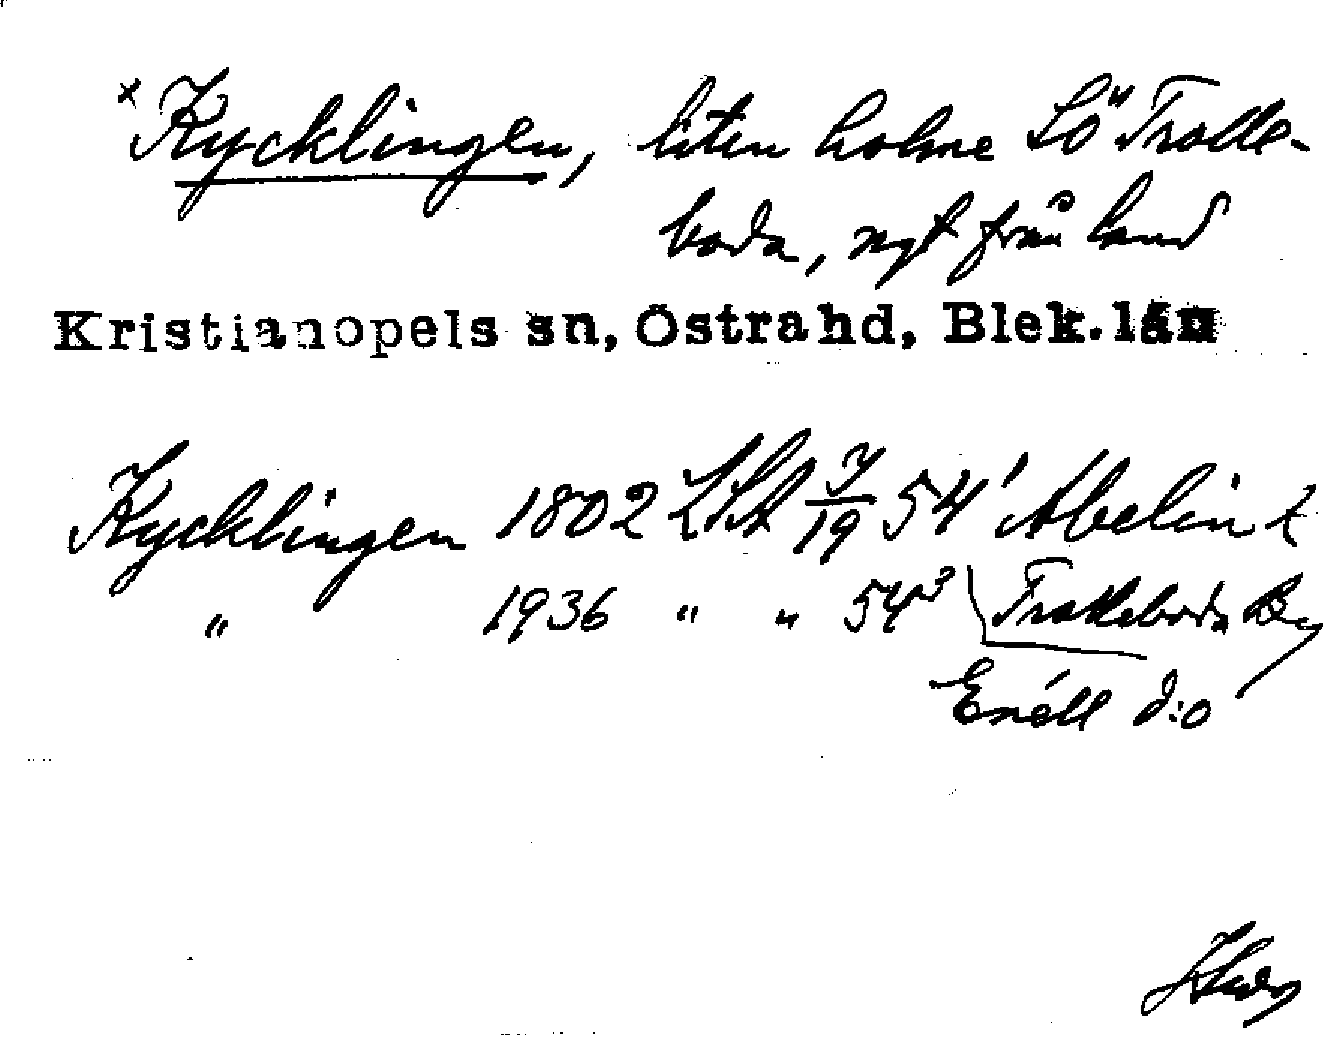 * Kycklingen, liten holme SÖ Trolle-
boda, ngt från land
Kristianopels sn, Östra hd, Blek. län
Kycklingen 1802 LSA 7/19 54¹ Abelin k
" 1936 " " 54³ Trolleboda By
Enéll d:o